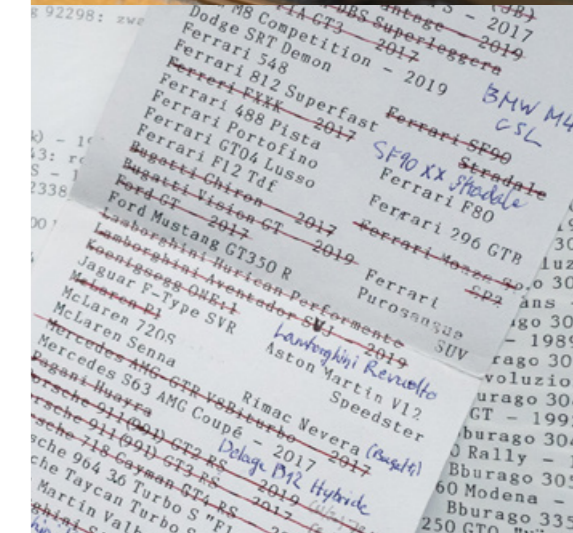 g 92298: zwa
antage - 2019
DBS Superleggera
GT3 - 2017
M8 Competition - 2019
Dodge SRT Demon
Ferrari 548
Ferrari 812 Superfast
Ferrari FXXK - 2017
Ferrari 488 Pista
Ferrari Portofino
Ferrari GT04 Lusso
Ferrari F12 Tdf
Bugatti Chiron - 2017
Bugatti Vision GT - 2019
Ford GT - 2017
Ford Mustang GT350 R
Lamborghini Hurican Performente
Lamborghini Aventador SVJ - 2019
Koenigsegg ONE:1
Jaguar F-Type SVR
McLaren P1
McLaren 720S
McLaren Senna
Mercedes AMG GTR V8Biturbo - 2017
Mercedes S63 AMG Coupé - 2017
Pagani Huayra
orsche 911(991) GT2 RS - 2019
orsche 911(991) GT3 RS
rsche 718 Cayman GT4 RS - 2017
sche 964 3.6 Turbo S "Fl
che Taycan Turbo S
Martin Valh
BMW M4
CSL
Ferrari SF90
Stradale
SF90 XX Stradale
Ferrari F80
Ferrari 296 GTB
Ferrari Monza
SP2
Ferrari
Purosangue
SUV
Lamborghini Revuelto
Aston Martin V12
Speedster
Rimac Nevera (Bugatti)
Delage D12 Hybride
- 1989
rago 30
voluzio
urago 304
GT - 199
burago 304
Rally -
Bburago 305
60 Modena -
Bburago 335
250 GTO